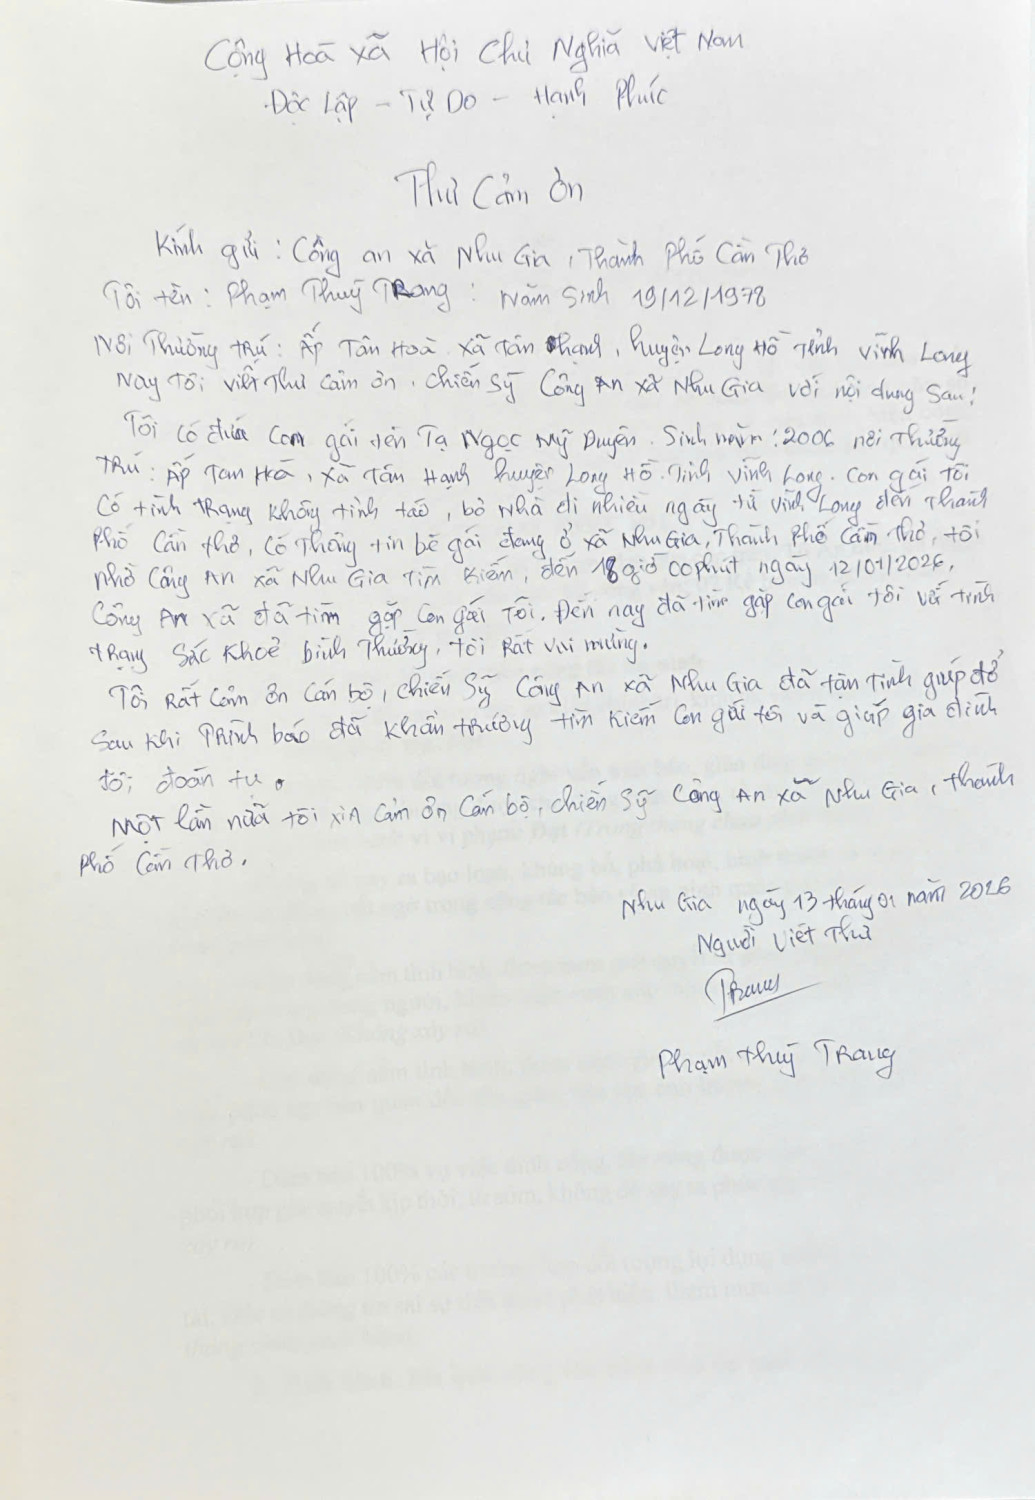 Cộng Hoà xã Hội Chủ Nghĩa Việt Nam
Độc Lập - Tự Do - Hạnh Phúc
Thư Cảm Ơn
Kính gửi : Công an xã Nhu Gia, Thành Phố Cần Thơ
Tôi tên : Phạm Thuỳ Trang : Năm Sinh 19/12/1978
Nơi Thường trú : Ấp Tân Hoà xã Tân Hạnh, huyện Long Hồ Tỉnh Vĩnh Long
Nay Tôi viết Thư cảm ơn. chiến Sỹ Công An xã Nhu Gia với nội dung Sau:
Tôi có đứa con gái tên Tạ Ngọc Mỹ Duyên. Sinh năm : 2006 nơi Thường
trú : Ấp Tân Hoà, xã Tân Hạnh huyện Long Hồ. Tỉnh Vĩnh Long. Con gái tôi
Có tình trạng không tỉnh táo, bỏ nhà đi nhiều ngày từ Vĩnh Long đến Thành
Phố Cần thơ, Có Thông tin bé gái đang ở xã Nhu Gia, Thành Phố Cần Thơ, tôi
nhờ Công An xã Nhu Gia Tìm Kiếm, đến 18 giờ 00 phút ngày 12/01/2026,
Công An xã đã tìm gặp con gái Tôi. Đến nay đã tìm gặp con gái tôi với tình
trạng Sức Khoẻ bình Thường, tôi Rất vui mừng.
Tôi Rất Cảm ơn Cán bộ, chiến Sỹ Công An xã Nhu Gia đã tận tình giúp đỡ
Sau khi Trình báo đã Khẩn trương tìm Kiếm Con gái tôi và giúp gia đình
tôi đoàn tụ.
Một lần nữa tôi xin Cảm ơn Cán bộ, chiến Sỹ Công An xã Nhu Gia, thành
Phố Cần Thơ.
Nhu Gia ngày 13 tháng 01 năm 2026
Người Viết Thư
Trang
Phạm Thuỳ Trang